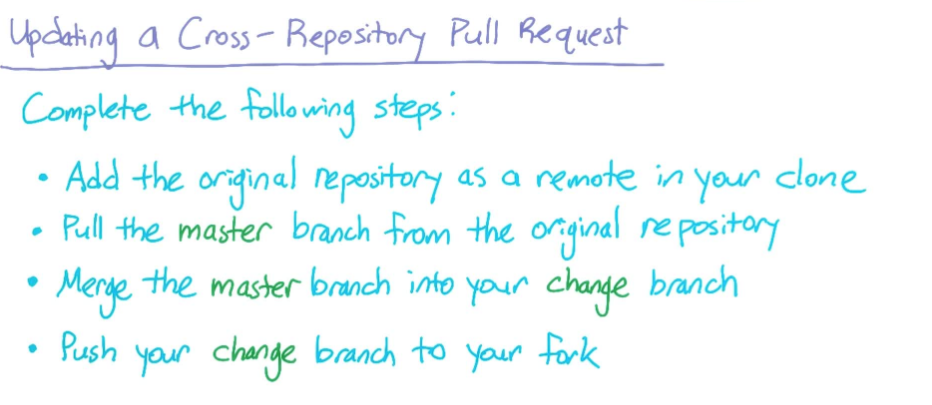 Updating a Cross-Repository Pull Request
Complete the following steps:
• Add the original repository as a remote in your clone
• Pull the master branch from the original repository
• Merge the master branch into your change branch
• Push your change branch to your fork